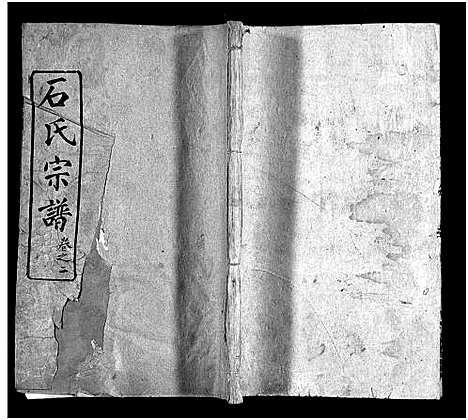 石氏宗譜 卷之二